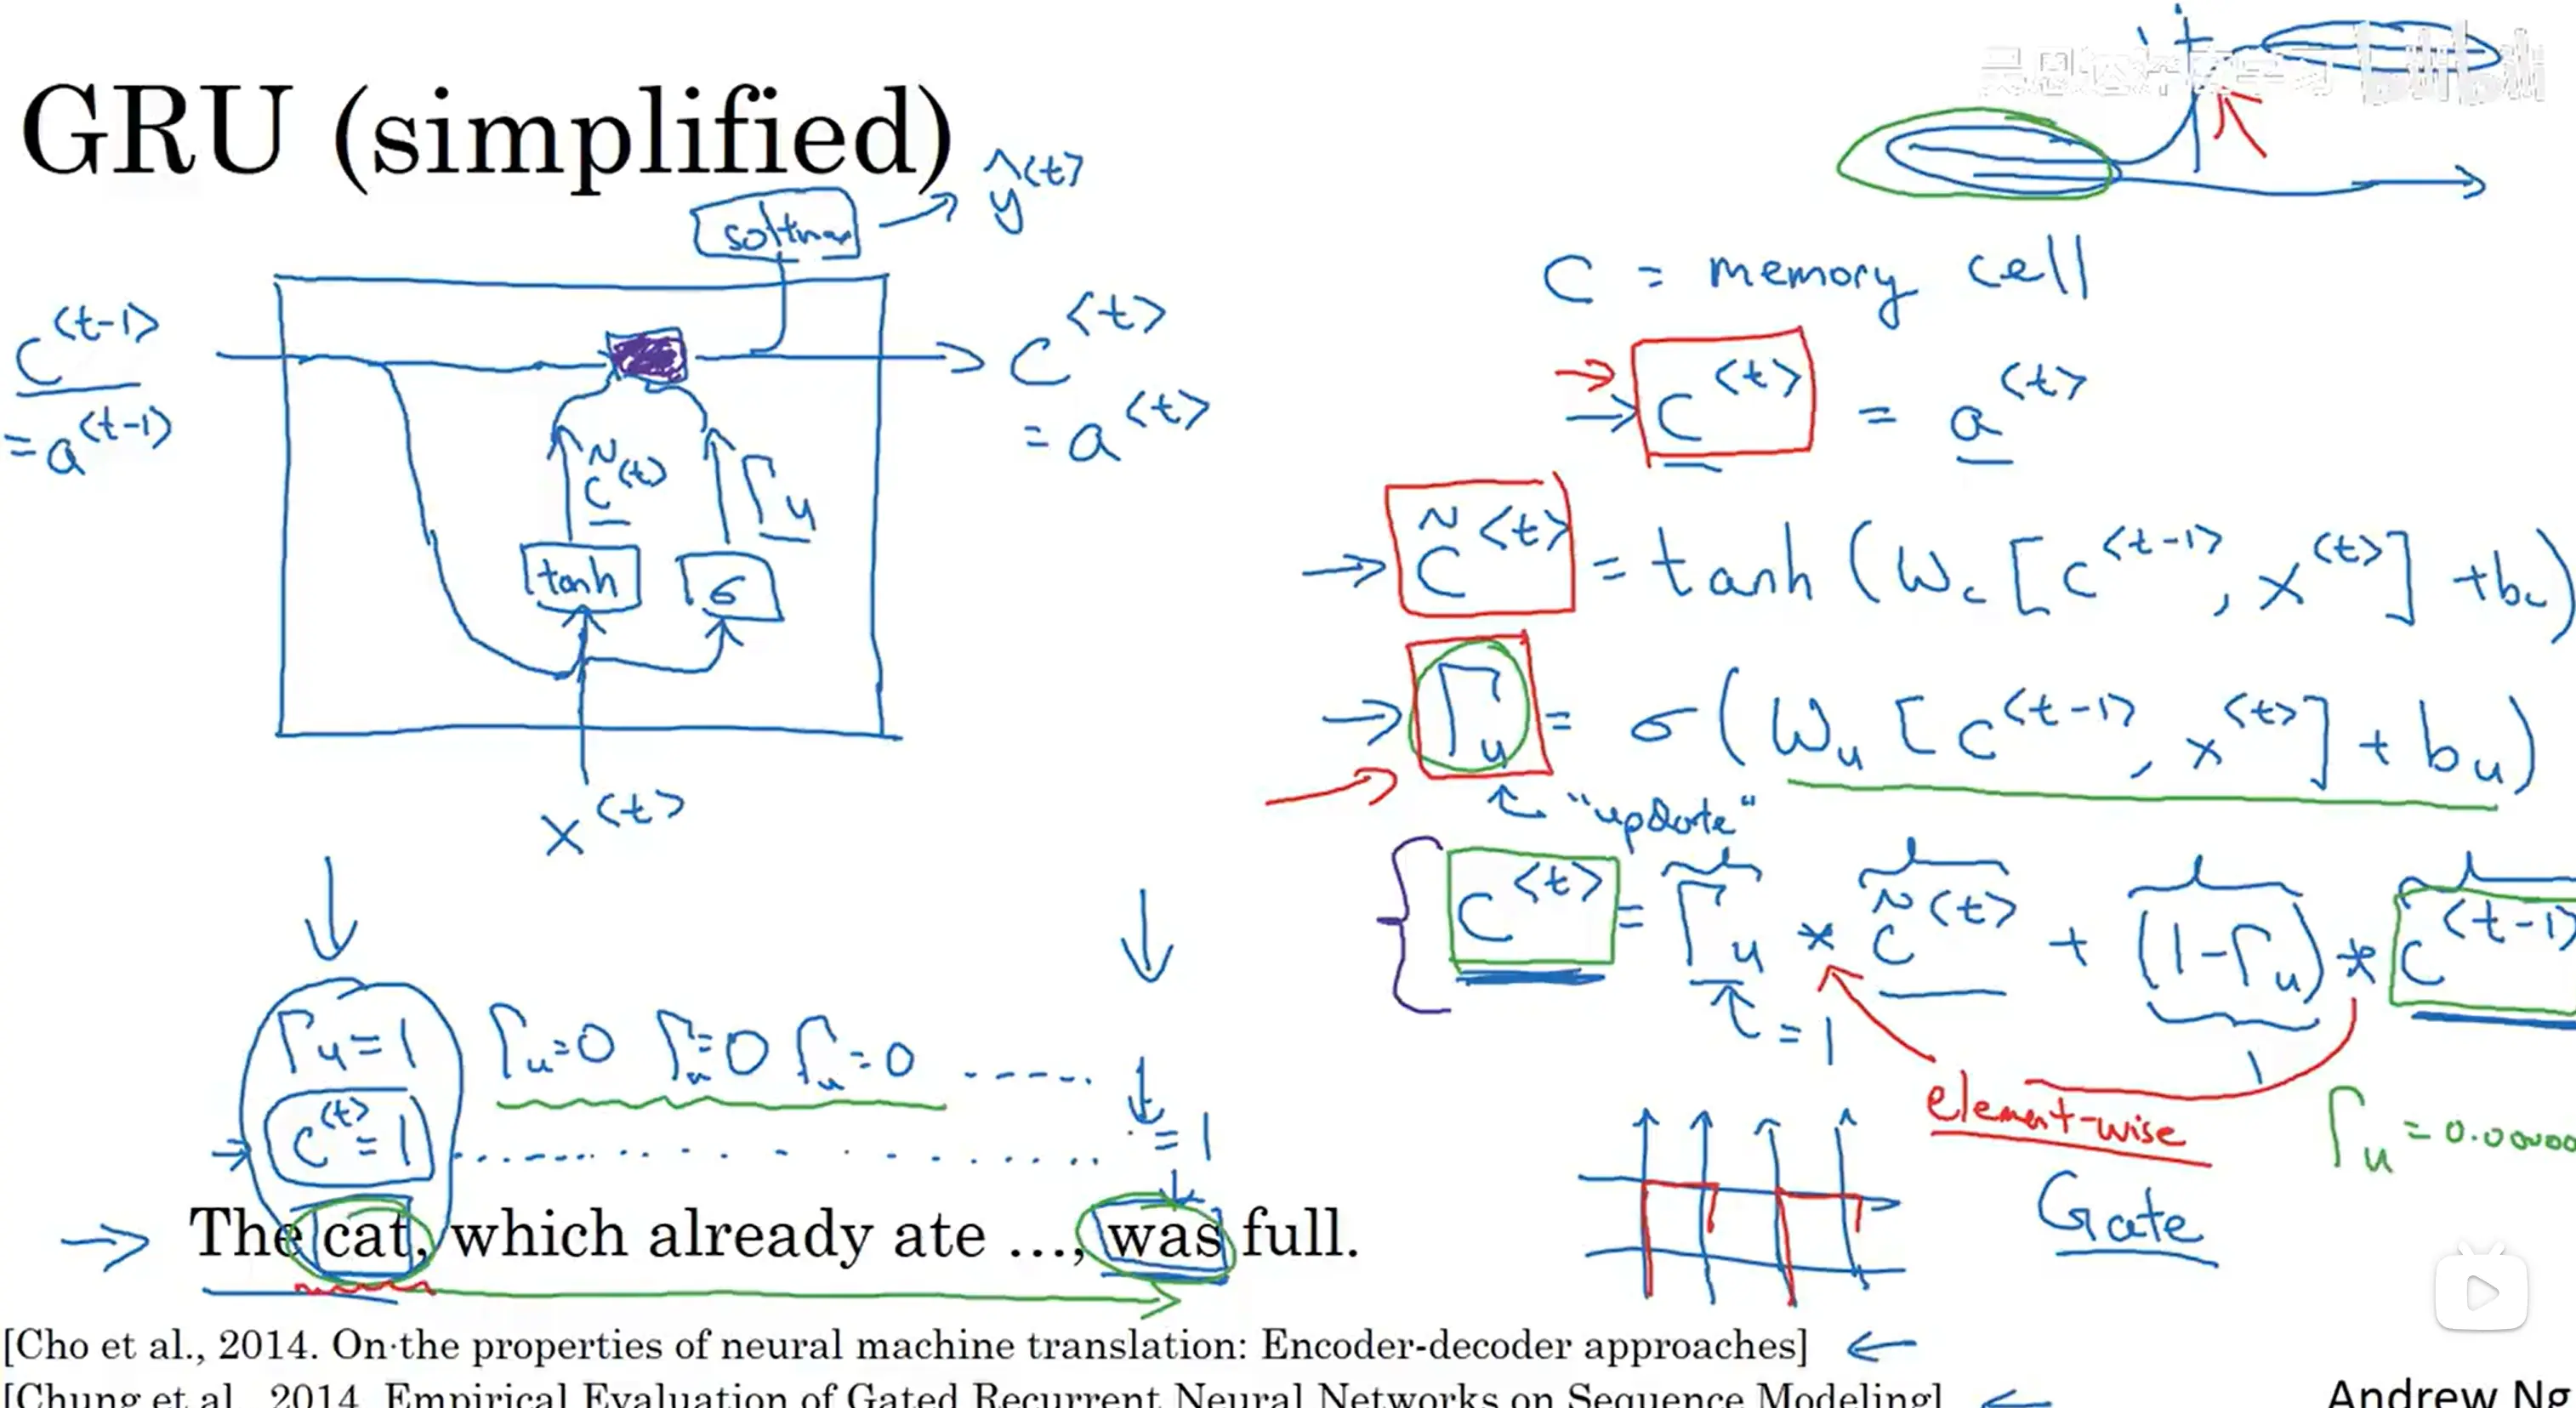 GRU (simplified)
softmax
ŷ<t>
c<t-1>
= a<t-1>
c<t>
= a<t>
c̃(t)
Γu
tanh
σ
x<t>
c = memory cell
c<t> = a<t>
c̃<t> = tanh (Wc [c<t-1>, x<t>] + bc)
Γu = σ (Wu [c<t-1>, x<t>] + bu)
"update"
c<t> = Γu * c̃<t> + (1-Γu) * c<t-1>
= 1
element-wise
Γu = 0.00000
Gate
Γu=1 Γu=0 Γu=0 Γu=0 .....
c<t>=1 = 1
The cat, which already ate …, was full.
[Cho et al., 2014. On the properties of neural machine translation: Encoder-decoder approaches]
[Chung et al., 2014. Empirical Evaluation of Gated Recurrent Neural Networks on Sequence Modeling]
Andrew Ng